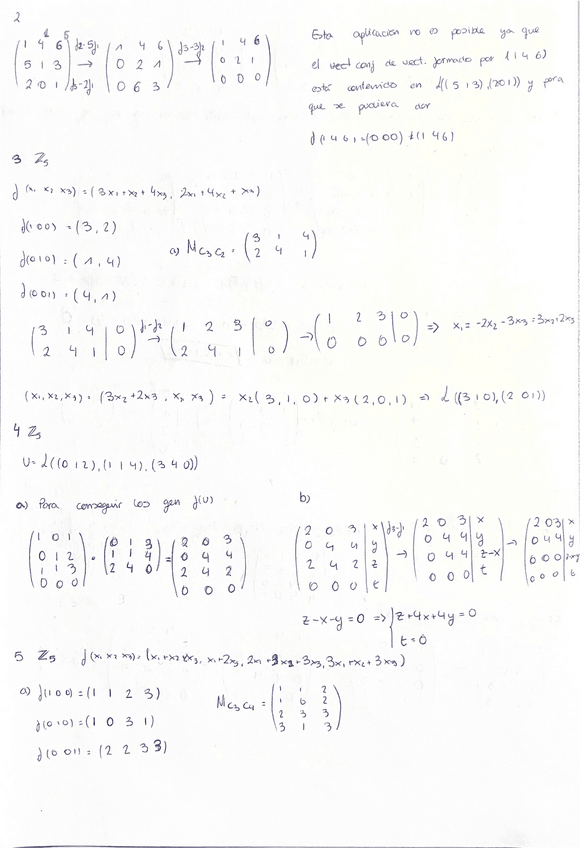 2
(1 4 6 / 5 1 3 / 2 0 1) → f2-5f1 f3-2f1 (1 4 6 / 0 2 1 / 0 6 3) → f3-3f2 (1 4 6 / 0 2 1 / 0 0 0)
Esta aplicacion no es posible ya que
el vect conj de vect. formado por (1 4 6)
está contenido en L((5 1 3),(2 0 1)) y para
que se pudiera dar
f(1 4 6) = (0 0 0) ≠ (1 4 6)
3 Z5
f(x1 x2 x3) = (3x1+x2+4x3, 2x1+4x2+x3)
f(1 0 0) = (3, 2)
f(0 1 0) = (1, 4)
f(0 0 1) = (4, 1)
a) M C3 C2 = (3 1 4 / 2 4 1)
(3 1 4 | 0 / 2 4 1 | 0) → f1-f2 (1 2 3 | 0 / 2 4 1 | 0) → (1 2 3 | 0 / 0 0 0 | 0) => x1 = -2x2 - 3x3 = 3x2+2x3
(x1, x2, x3) = (3x2+2x3, x2, x3) = x2(3, 1, 0) + x3(2, 0, 1) => L((3 1 0), (2 0 1))
4 Z5
U = L((0 1 2), (1 1 4), (3 4 0))
a) Para conseguir los gen f(U)
(1 0 1 / 0 1 2 / 1 1 3 / 0 0 0) · (0 1 3 / 1 1 4 / 2 4 0) = (2 0 3 / 0 4 4 / 2 4 2 / 0 0 0)
b)
(2 0 3 | x / 0 4 4 | y / 2 4 2 | z / 0 0 0 | t) → f3-f1 (2 0 3 | x / 0 4 4 | y / 0 4 4 | z-x / 0 0 0 | t) → (2 0 3 | x / 0 4 4 | y / 0 0 0 | z-x-y / 0 0 0 | t)
z-x-y = 0 => { z+4x+4y = 0
t = 0
5 Z5 f(x1 x2 x3) = (x1+x2+2x3, x1+2x3, 2x1+3x2+3x3, 3x1+x2+3x3)
a) f(1 0 0) = (1 1 2 3)
f(0 1 0) = (1 0 3 1)
f(0 0 1) = (2 2 3 3)
M C3 C4 = (1 1 2 / 1 0 2 / 2 3 3 / 3 1 3)